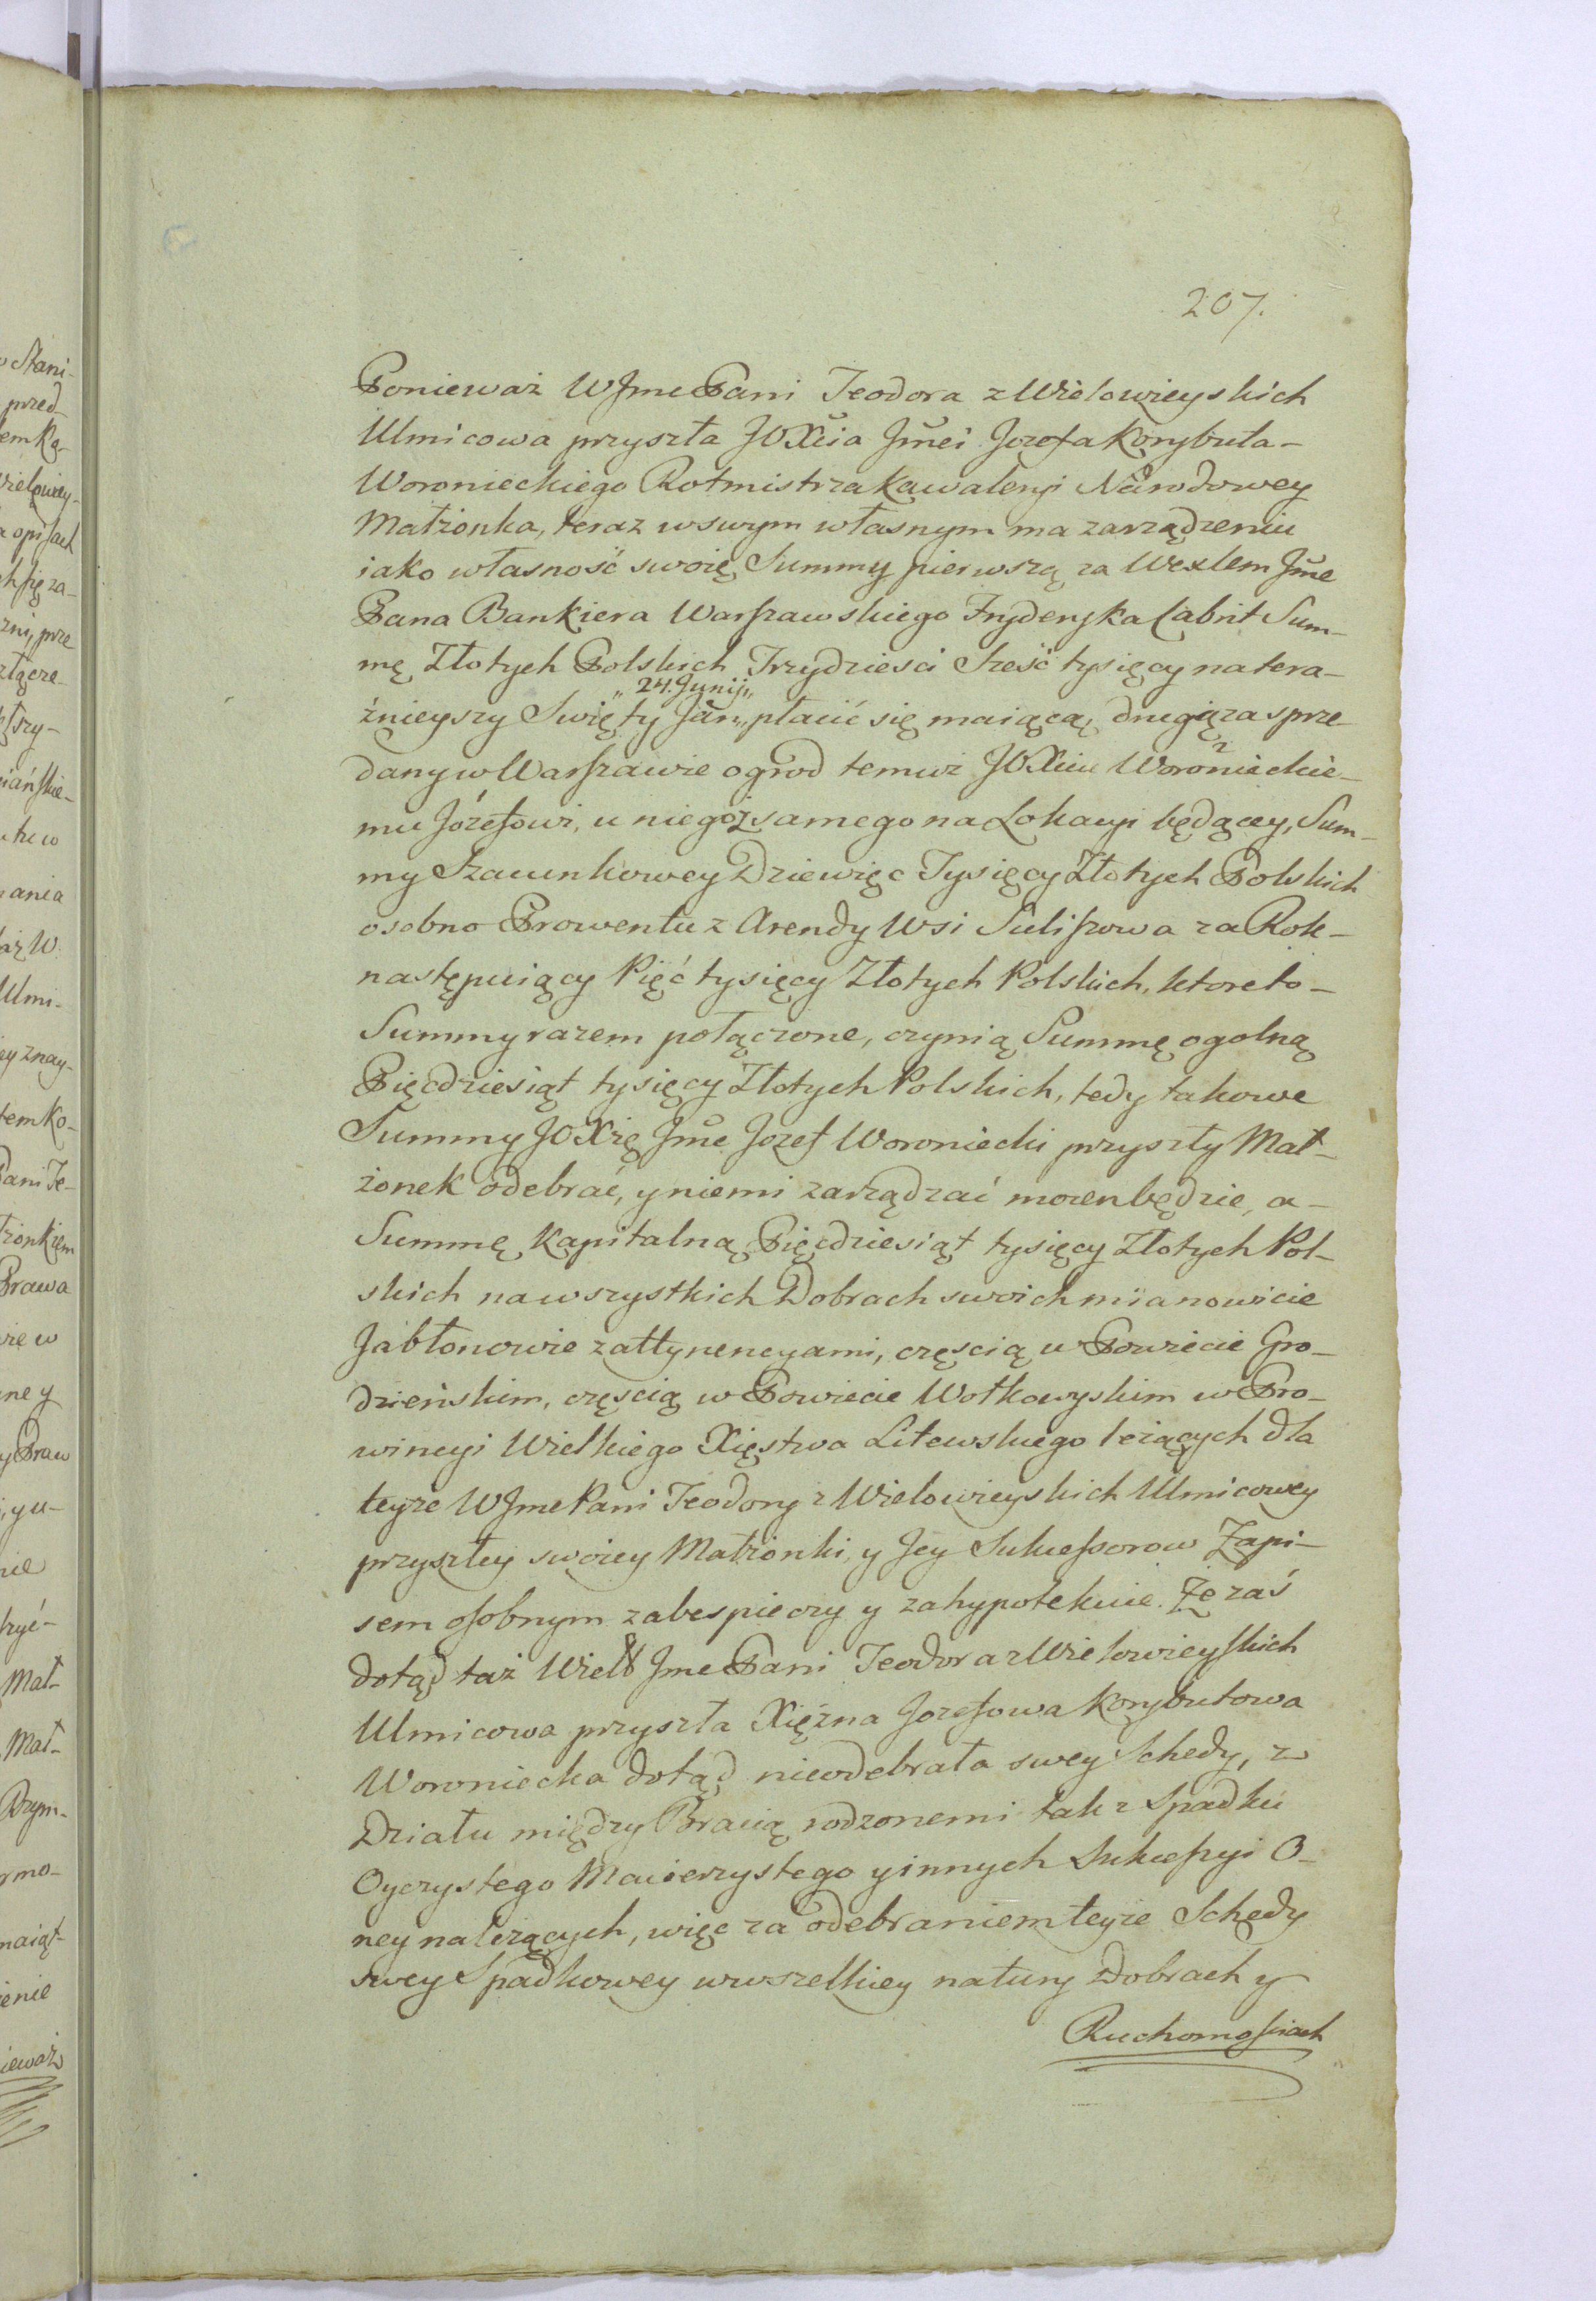 207.
Ponieważ WJme Pani Teodora z Wielowieyskich
Ulmicowa przyszła JOXcia Jmci Jozefa Korybuta-
Woronieckiego Rotmistrza Kawaleryi Narodowey
Małżonka, teraz w swym własnym ma zarządzeniu
iako własność swoię Summy pierwszą za Wexlem Jme
Pana Bankiera Warszawskiego Fryderyka Cabrit Sum-
mę Złotych Polskich Trzydziesci Sześć tysięcy na tera-
"24. Junij"
źnieyszy Swięty Jan, płacić się maiącą, drugą za sprze-
dany w Warszawie ogrod temuż JOXciu Woronieckie-
mu Józefowi, u niegoż samego na Lokacyi będącey, Sum-
my Szacunkowey Dziewięc Tysięcy Złotych Polskich
osobno Prowentu z Arendy Wsi Suliszowa za Rok-
następuiący Pięć tysięcy Złotych Polskich, ktoreto-
Summy razem połączone, czynią Summę ogolną
Pięcdziesiąt tysięcy Złotych Polskich, tedy takowe
Summy JOXżę Jme Jozef Woroniecki przyszły Mał-
żonek odebrać, y niemi zarządzać mocen będzie, a-
Summę Kapitalną Pięcdziesiąt tysięcy Złotych Pol-
skich na wszystkich Dobrach swoich mianowicie
Jabłonowie z attynencyami, częscią w Powiecie Gro-
dzieńskim, częscią w Powiecie Wołkowyskim w Pro-
wincyi Wielkiego Xięstwa Litewskiego leżących dla
teyże WJme Pani Teodory z Wielowieyskich Ulmicowey
przyszłey swoiey Małżonki, y Jey Sukcessorow Zapi-
sem osobnym zabespieczy y zahypotekuie. Że zaś
dotąd taż Wiel Jme Pani Teodora z Wielowieyskich
Ulmicowa przyszła Xiężna Jozefowa Korybutowa
Woroniecka dotąd nieodebrała swey Schedy, z
Działu między Bracią rodzonemi tak z Spadku
Oyczystego Macierzystego y innych Sukcessyi O-
ney należących, więc za odebraniem teyże Schedy
swey Spadkowey w wszelkiey natury Dobrach y
Ruchomościach